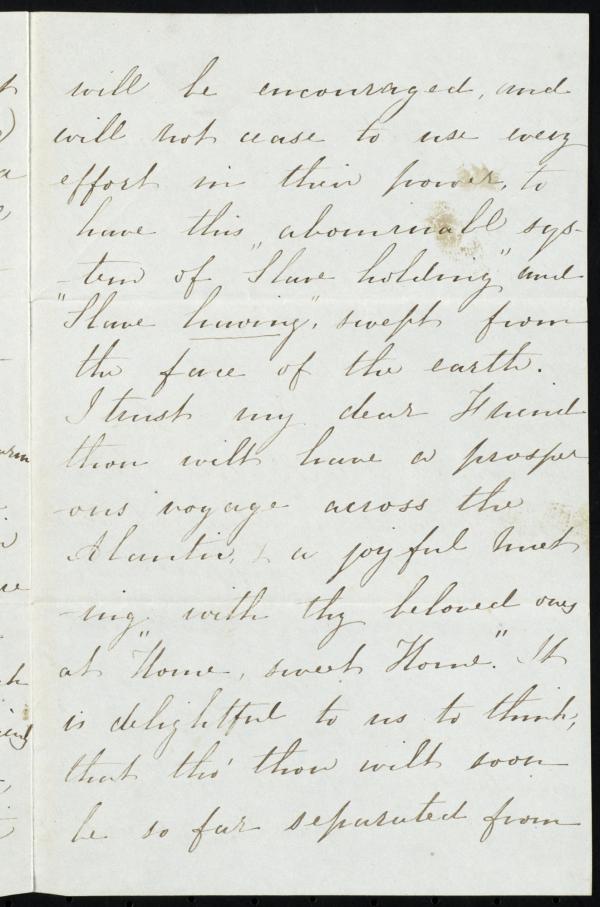 will be encouraged, and
will not cease to use every
effort in their power, to
have this abominabll sys-
-tem of "Slave holding" and
"Slave having", swept from
the face of the earth.
I trust my dear Friend
thou wilt have a prosper
-ous voyage across the
Atlantic, & a joyful meet
-ing with thy beloved ones
at "Home, sweet Home". It
is delightful to us to think,
that tho' thou wilt soon
be so far separated from